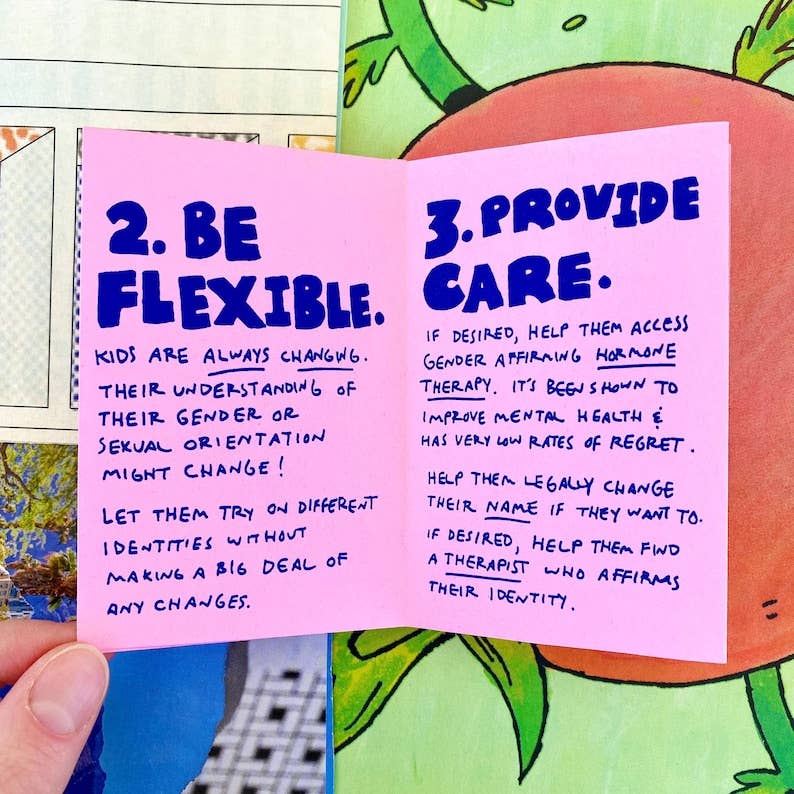 2. BE
FLEXIBLE.
KIDS ARE ALWAYS CHANGING.
THEIR UNDERSTANDING OF
THEIR GENDER OR
SEXUAL ORIENTATION
MIGHT CHANGE!
LET THEM TRY ON DIFFERENT
IDENTITIES WITHOUT
MAKING A BIG DEAL OF
ANY CHANGES.
3. PROVIDE
CARE.
IF DESIRED, HELP THEM ACCESS
GENDER AFFIRMING HORMONE
THERAPY. IT'S BEEN SHOWN TO
IMPROVE MENTAL HEALTH &
HAS VERY LOW RATES OF REGRET.
HELP THEM LEGALLY CHANGE
THEIR NAME IF THEY WANT TO.
IF DESIRED, HELP THEM FIND
A THERAPIST WHO AFFIRMS
THEIR IDENTITY.